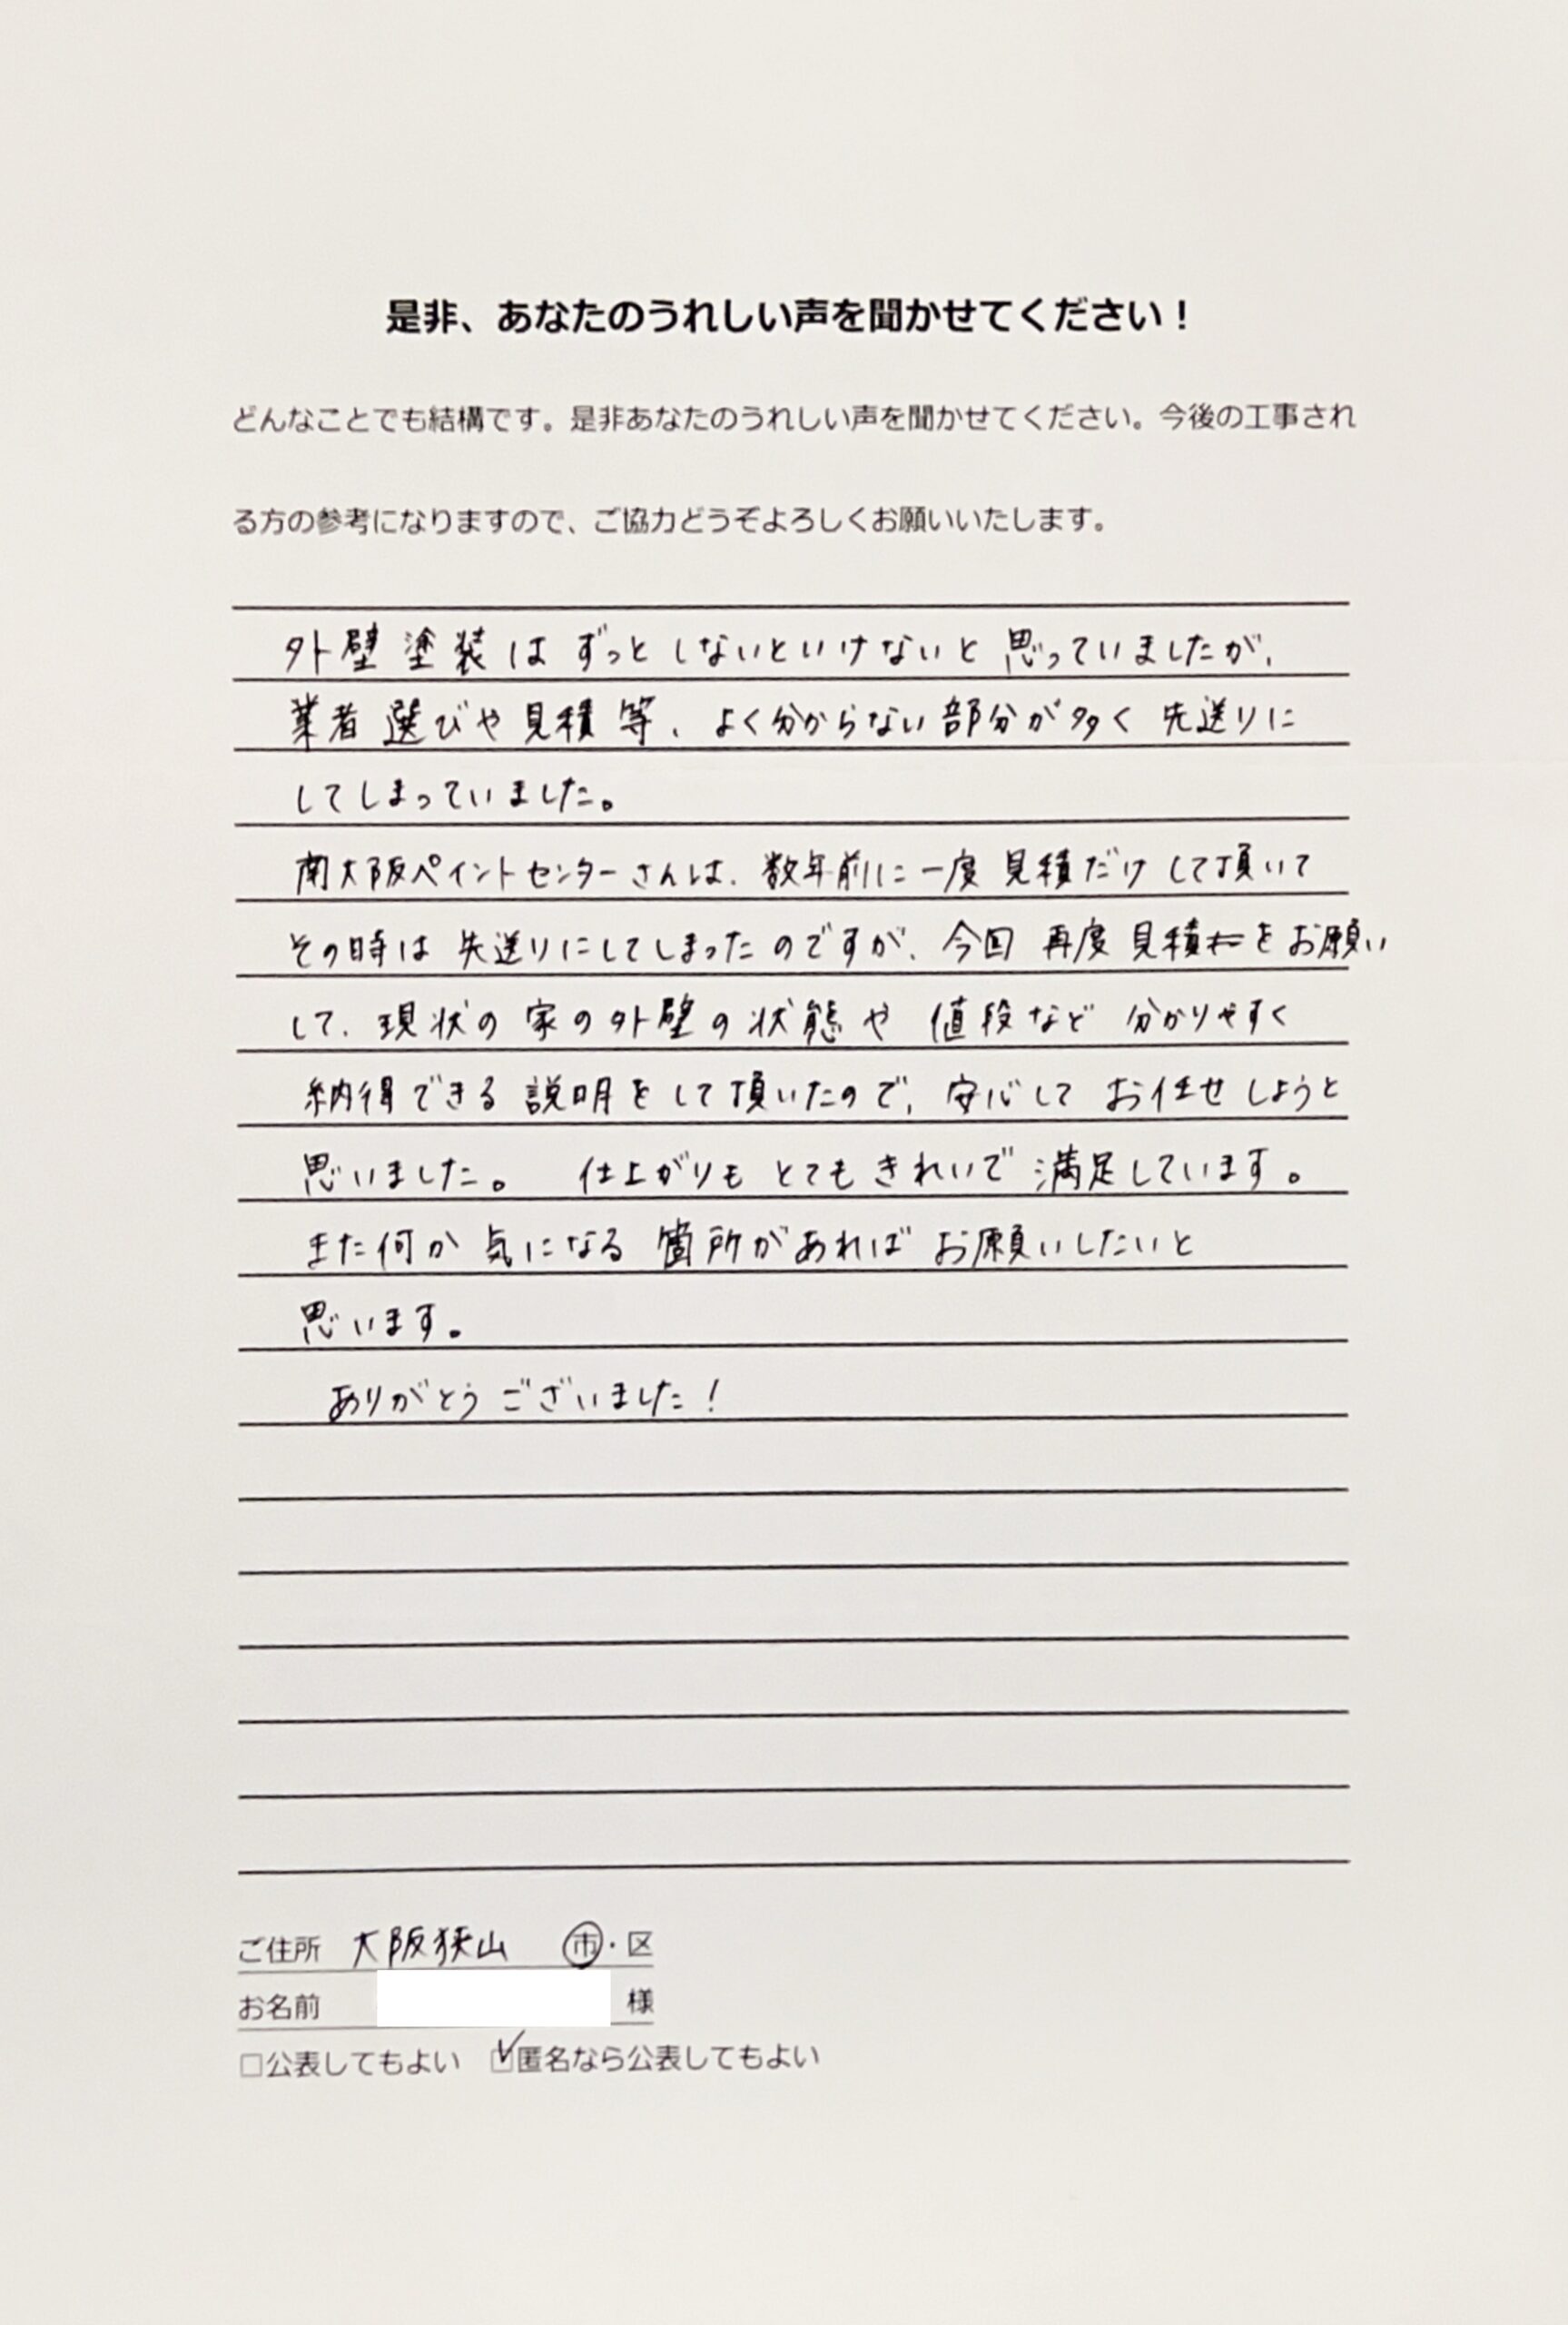 是非、あなたのうれしい声を聞かせてください！
どんなことでも結構です。是非あなたのうれしい声を聞かせてください。今後の工事され
る方の参考になりますので、ご協力どうぞよろしくお願いいたします。
外壁塗装はずっとしないといけないと思っていましたが、
業者選びや見積等、よく分からない部分が多く先送りに
してしまっていました。
南大阪ペイントセンターさんは、数年前に一度見積だけして頂いて
その時は先送りにしてしまったのですが、今回再度見積をお願い
して、現状の家の外壁の状態や値段など分かりやすく
納得できる説明をして頂いたので、安心してお任せしようと
思いました。 仕上がりもとてもきれいで満足しています。
また何か気になる箇所があればお願いしたいと
思います。
ありがとうございました！
ご住所 大阪狭山 市・区
お名前 様
□公表してもよい ☑匿名なら公表してもよい